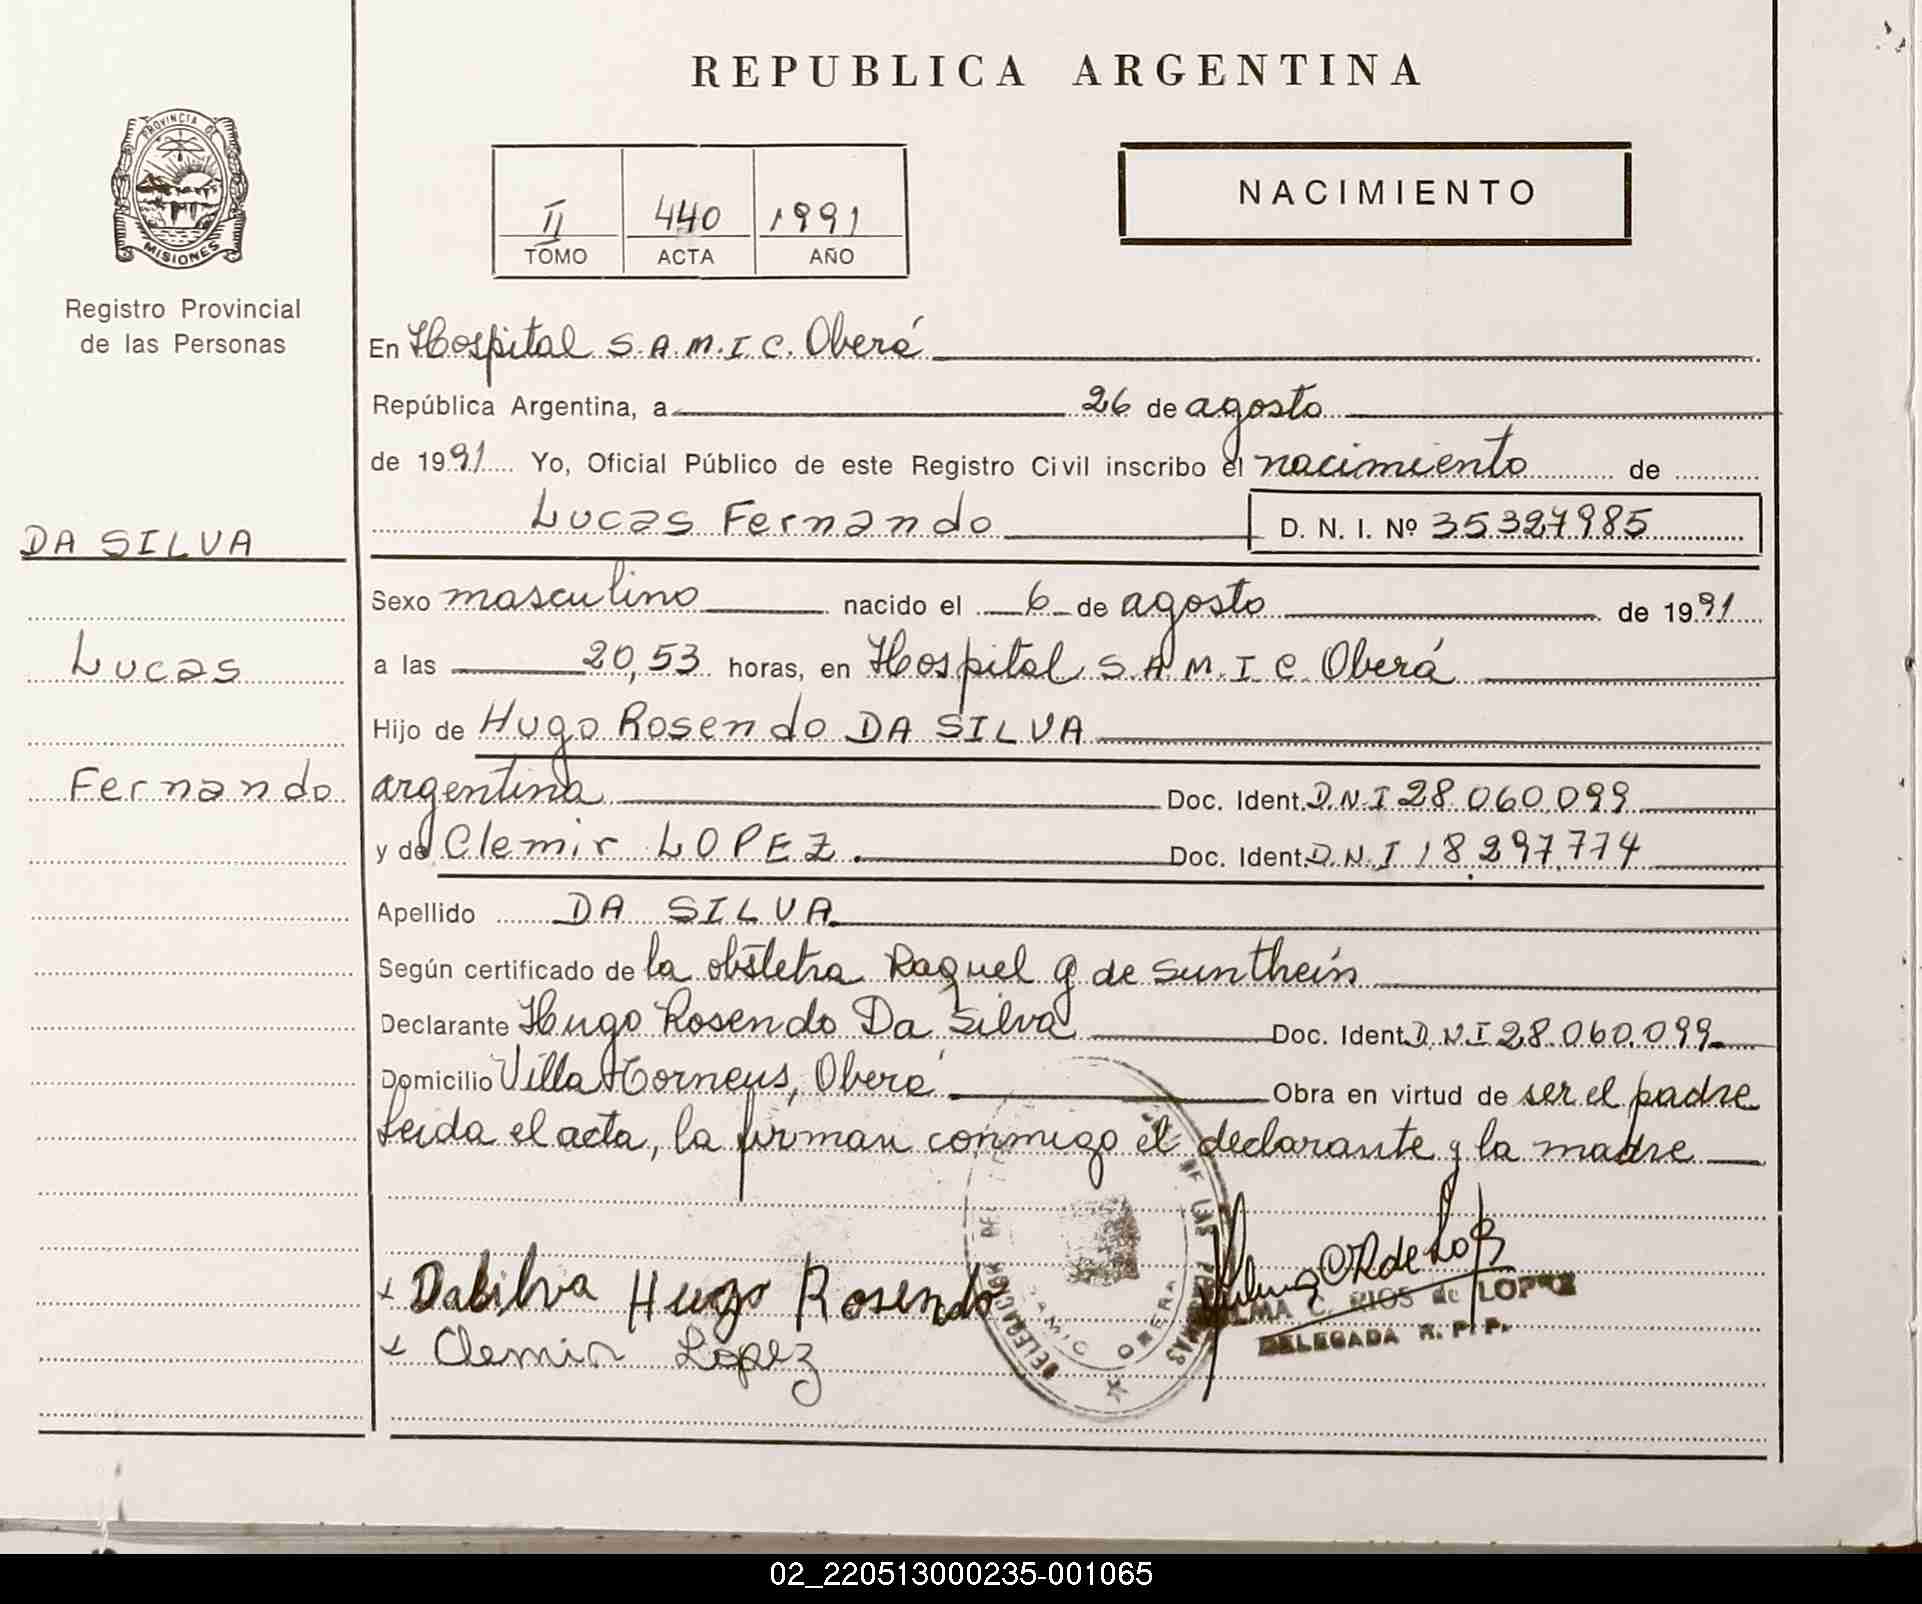 REPUBLICA ARGENTINA
PROVINCIA DE
MISIONES
Registro Provincial
de las Personas
NACIMIENTO
II 440 1991
TOMO ACTA AÑO
En Hospital S.A.M.I.C. Oberá
República Argentina, a 26 de agosto
de 1991 Yo, Oficial Público de este Registro Civil inscribo el nacimiento de
Lucas Fernando D. N. I. Nº 35327985
DA SILVA
Lucas
Fernando
Sexo masculino nacido el 6 de agosto de 1991
a las 20,53 horas, en Hospital S.A.M.I.C. Oberá
Hijo de Hugo Rosendo DA SILVA
argentina Doc. Ident. D.N.I 28.060.099
y de Clemir LOPEZ. Doc. Ident. D.N.I 18.297.774
Apellido DA SILVA
Según certificado de la obstetra Raquel G de Sunthein
Declarante Hugo Rosendo Da Silva Doc. Ident D.N.I 28.060.099
Domicilio Villa Torneus, Oberá Obra en virtud de ser el padre
Leida el acta, la firman conmigo el declarante y la madre
Dasilva Hugo Rosendo
Clemir Lopez
DELEGACION DE LAS PERSONAS
SAMIC OBERA
C. RIOS de LOPEZ
DELEGADA R. P. P.
02_220513000235-001065